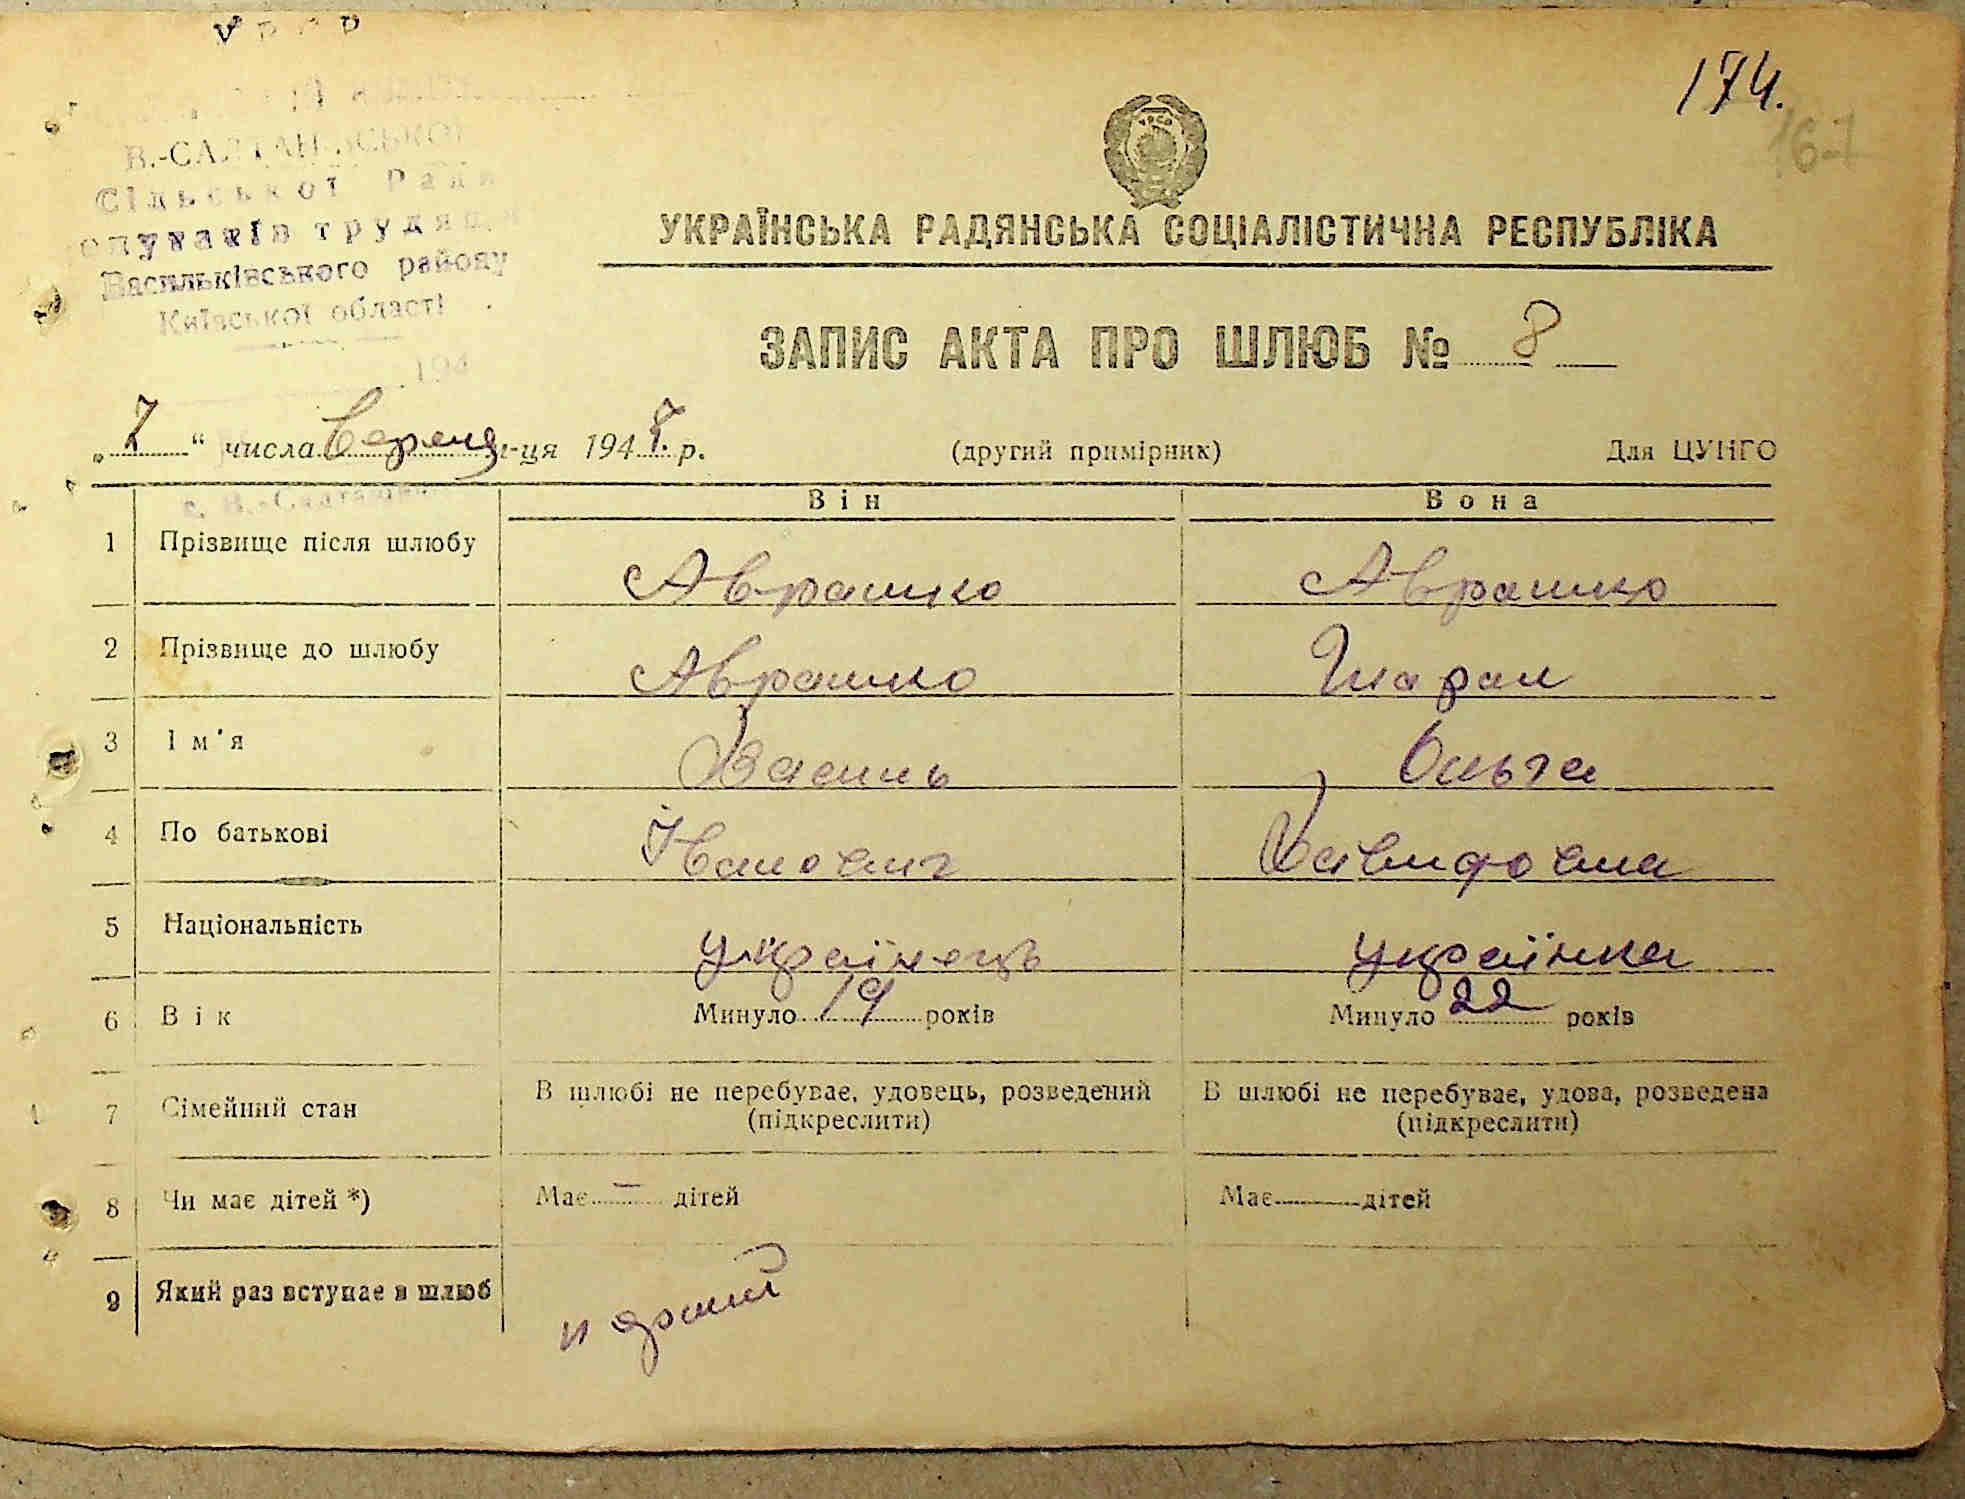 УРСР
174.
167
В.-САЛТАНІВСЬКОЇ
Сільської Ради
депутатів трудящ
Васильківського району
Київської області
194
УРСР
УКРАЇНСЬКА РАДЯНСЬКА СОЦІАЛІСТИЧНА РЕСПУБЛІКА
ЗАПИС АКТА ПРО ШЛЮБ № 8
„7“ числа Вересня м-ця 1948 р. (другий примірник) Для ЦУНГО
с. В.-Салтанівка
Він Вона
1 Прізвище після шлюбу Аврашко Аврашко
2 Прізвище до шлюбу Аврашко Шарай
3 Ім'я Василь Ольга
4 По батькові Іванович Давидовна
5 Національність українець українка
6 Вік Минуло 19 років Минуло 22 років
7 Сімейний стан В шлюбі не перебуває, удовець, розведений В шлюбі не перебуває, удова, розведена
(підкреслити) (підкреслити)
8 Чи має дітей *) Має — дітей Має дітей
9 Який раз вступає в шлюб
перший